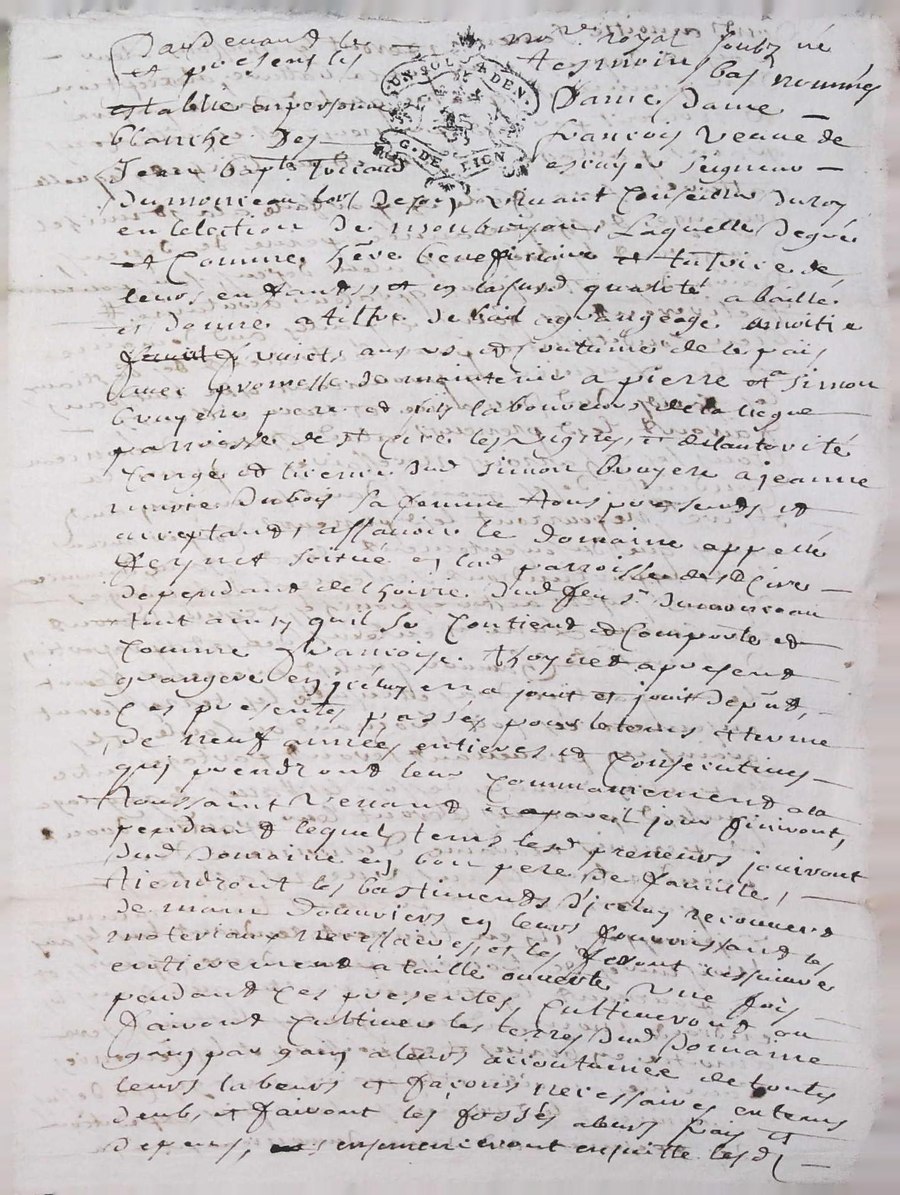 Pardevand le no.re royal soubz né
et presents les tesmoins bas nommés
establie en personne Dame Dame
UN SOL 4 DEN.
G. DE LION
blanche Des francois veauve de
Jean bapte escuyer seigneur
Dumonceau lors de son vivant Conseiller du roy
en lelection de monbrison Laquelle de gré
et Comme hére beneficiaire et tutrice de
leurs enfands et en lasusd qualité a baillé
et donne a tiltre de bail a grangeage amoitie
fruits ans us et Coutume de ce pais
avec promesse de maintenir a pierre et a simon
bruyere pere et fils laboureurs de la liegue
parroisse de st Cire les vignes et delautorité
Congé et licence dud simon bruyere a jeanne
marie Dubois sa femme tous presents et
acceptands assavoir le domaine appellé
Reynet scitué en lad parroisse de st Cire
dependant de lhoirie dud feu sr. Dumonceau
tout ainsy quil se Contiend et Comporte et
Comme francoise thoynet apresend
grangere en jceluy en a jouit et jouit
Ces presentes passées pour le tems et terme
de neuf années entieres et Consecutives
quy prendrond leur Commancemend a la
toussaint venand et a pareil jour finiront,
pendand lequel tems lesd preneurs jouiront
dud Domaine en bon pere de famille,
tiendront les bastiments d'jceluy recouverd
de main Douvriers en leurs fournissand les
materiaux necessaires et les feront
entierement a taille ouverte une fois
pendand Ces presentes, Cultiverond ou
fairond Cultiver les terres dud Domaine
gain par gain a leurs accoutumée de touts
leurs labeurs et facons necessaires en tems
deub, et fairont les fossés a leurs frais et
depens, ensemenceront ensuitte lesd